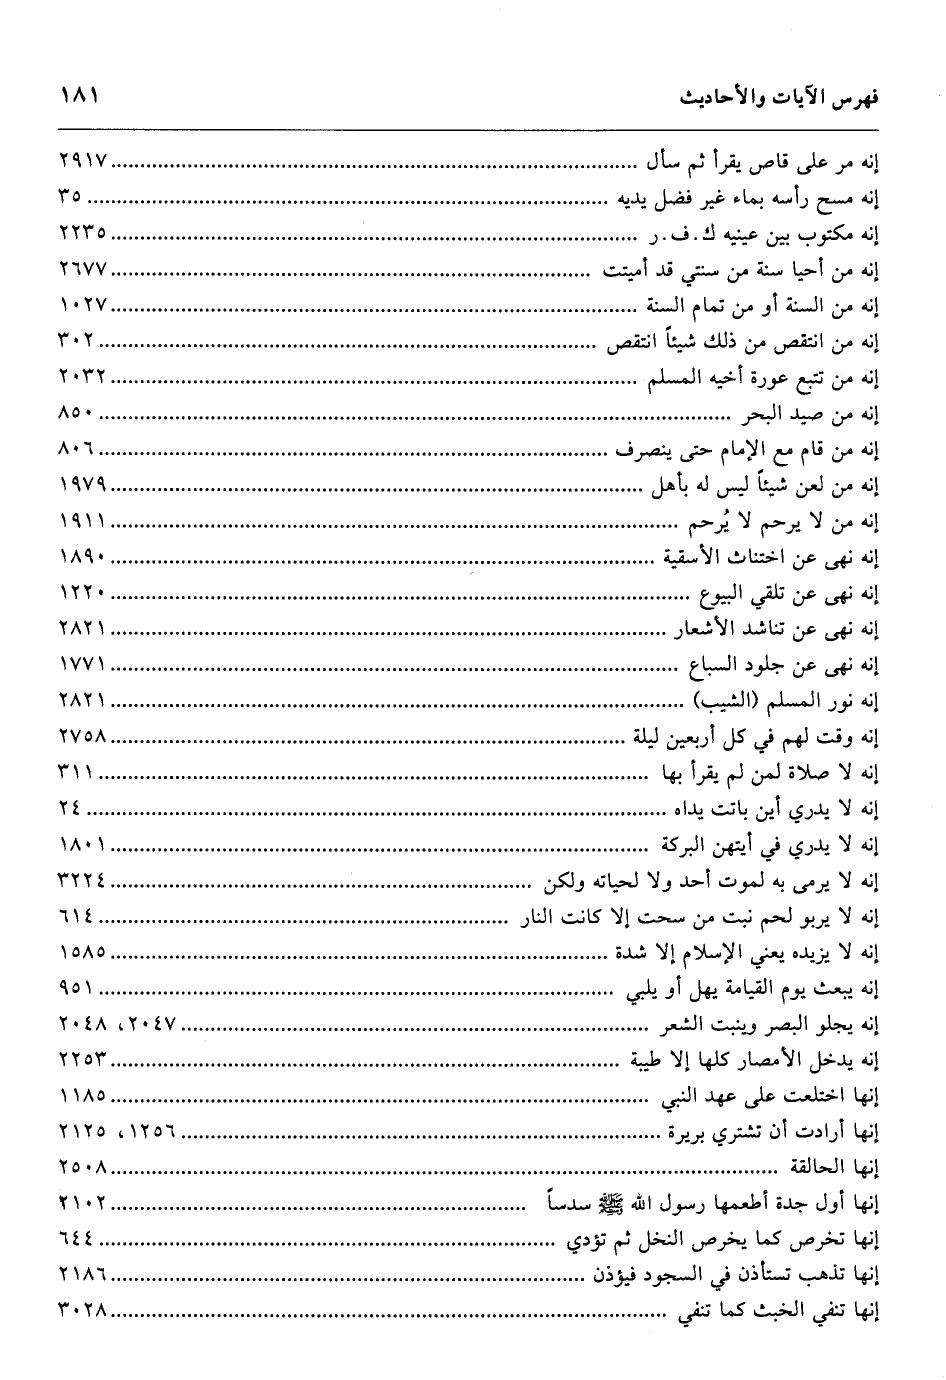 فهرس الآيات والأحاديث ١٨١
إنه مر على قاص يقرأ ثم سأل ٢٩١٧
إنه مسح رأسه بماء غير فضل يديه ٣٥
إنه مكتوب بين عينيه ك.ف.ر ٢٢٣٥
إنه من أحيا سنة من سنتي قد أميتت ٢٦٧٧
إنه من السنة أو من تمام السنة ١٠٢٧
إنه من انتقص من ذلك شيئاً انتقص ٣٠٢
إنه من تتبع عورة أخيه المسلم ٢٠٣٢
إنه من صيد البحر ٨٥٠
إنه من قام مع الإمام حتى ينصرف ٨٠٦
إنه من لعن شيئاً ليس له بأهل ١٩٧٩
إنه من لا يرحم لا يُرحم ١٩١١
إنه نهى عن اختناث الأسقية ١٨٩٠
إنه نهى عن تلقي البيوع ١٢٢٠
إنه نهى عن تناشد الأشعار ٢٨٢١
إنه نهى عن جلود السباع ١٧٧١
إنه نور المسلم (الشيب) ٢٨٢١
إنه وقت لهم في كل أربعين ليلة ٢٧٥٨
إنه لا صلاة لمن لم يقرأ بها ٣١١
إنه لا يدري أين باتت يداه ٢٤
إنه لا يدري في أيتهن البركة ١٨٠١
إنه لا يرمى به لموت أحد ولا لحياته ولكن ٣٢٢٤
إنه لا يربو لحم نبت من سحت إلا كانت النار ٦١٤
إنه لا يزيده يعني الإسلام إلا شدة ١٥٨٥
إنه يبعث يوم القيامة يهل أو يلبي ٩٥١
إنه يجلو البصر وينبت الشعر ٢٠٤٧، ٢٠٤٨
إنه يدخل الأمصار كلها إلا طيبة ٢٢٥٣
إنها اختلعت على عهد النبي ١١٨٥
إنها أرادت أن تشتري بريرة ١٢٥٦، ٢١٢٥
إنها الحالقة ٢٥٠٨
إنها أول جدة أطعمها رسول الله ﷺ سدساً ٢١٠٢
إنها تخرص كما يخرص النخل ثم تؤدي ٦٤٤
إنها تذهب تستأذن في السجود فيؤذن ٢١٨٦
إنها تنفي الخبث كما تنفي ٣٠٢٨